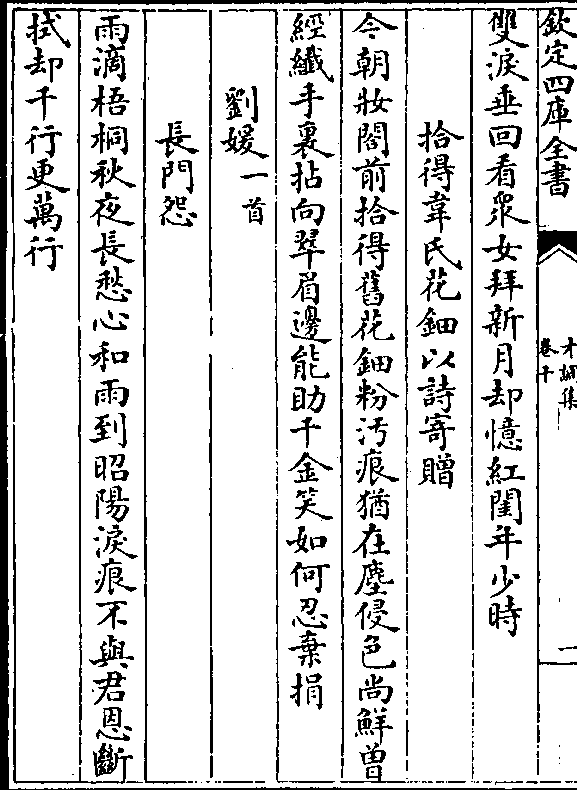 欽定四庫全書
才調集
卷十
一
雙淚垂回看衆女拜新月却憶紅閨年少時
拾得韋氏花鈿以詩寄贈
今朝妝閣前拾得舊花鈿粉汚痕猶在塵侵色尚鮮曽
經纎手裏拈向翠眉邊能助千金笑如何忍棄捐
劉媛一首
長門怨
雨滴梧桐秋夜長愁心和雨到昭陽淚痕不與君恩斷
拭却千行更萬行